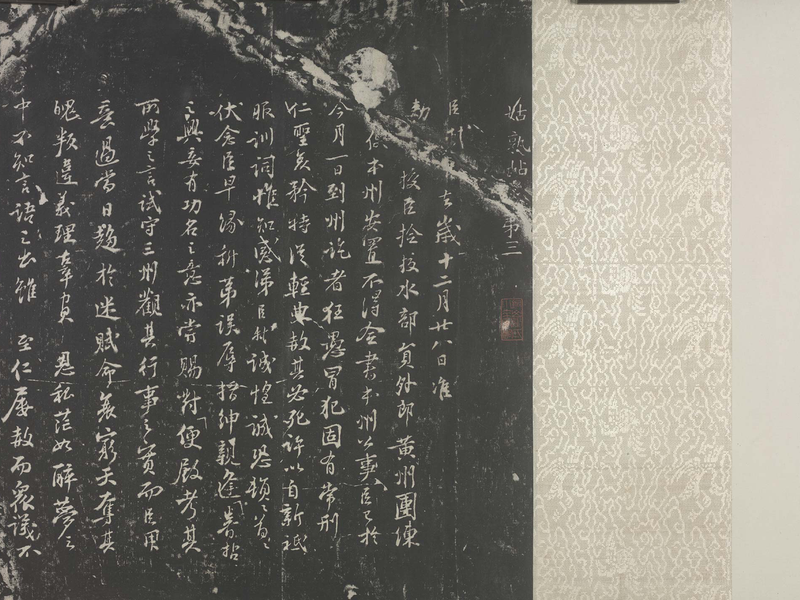 姑熟帖第三
臣軾 去歲十二月廿八日准
勑 授臣撿挍水部員外郎黃州團練
使本州安置不得僉書本州公事臣已於
今月一日到州訖者狂愚冒犯固有常刑
仁聖哀矜特從輕典赦其必死許以自新祗
服訓詞惟知感涕臣軾誠惶誠恐頓首頓首
伏念臣早緣科第誤辱搢紳親逢睿哲
之興妄有功名之意亦嘗賜對便殿考其
所學之言試守三州觀其行事之實而臣用
意過當日趨於迷賦命衰窮天奪其
魄叛違義理辜負 恩私茫如醉夢之
中不知言語之出雖 至仁屢赦而衆議不